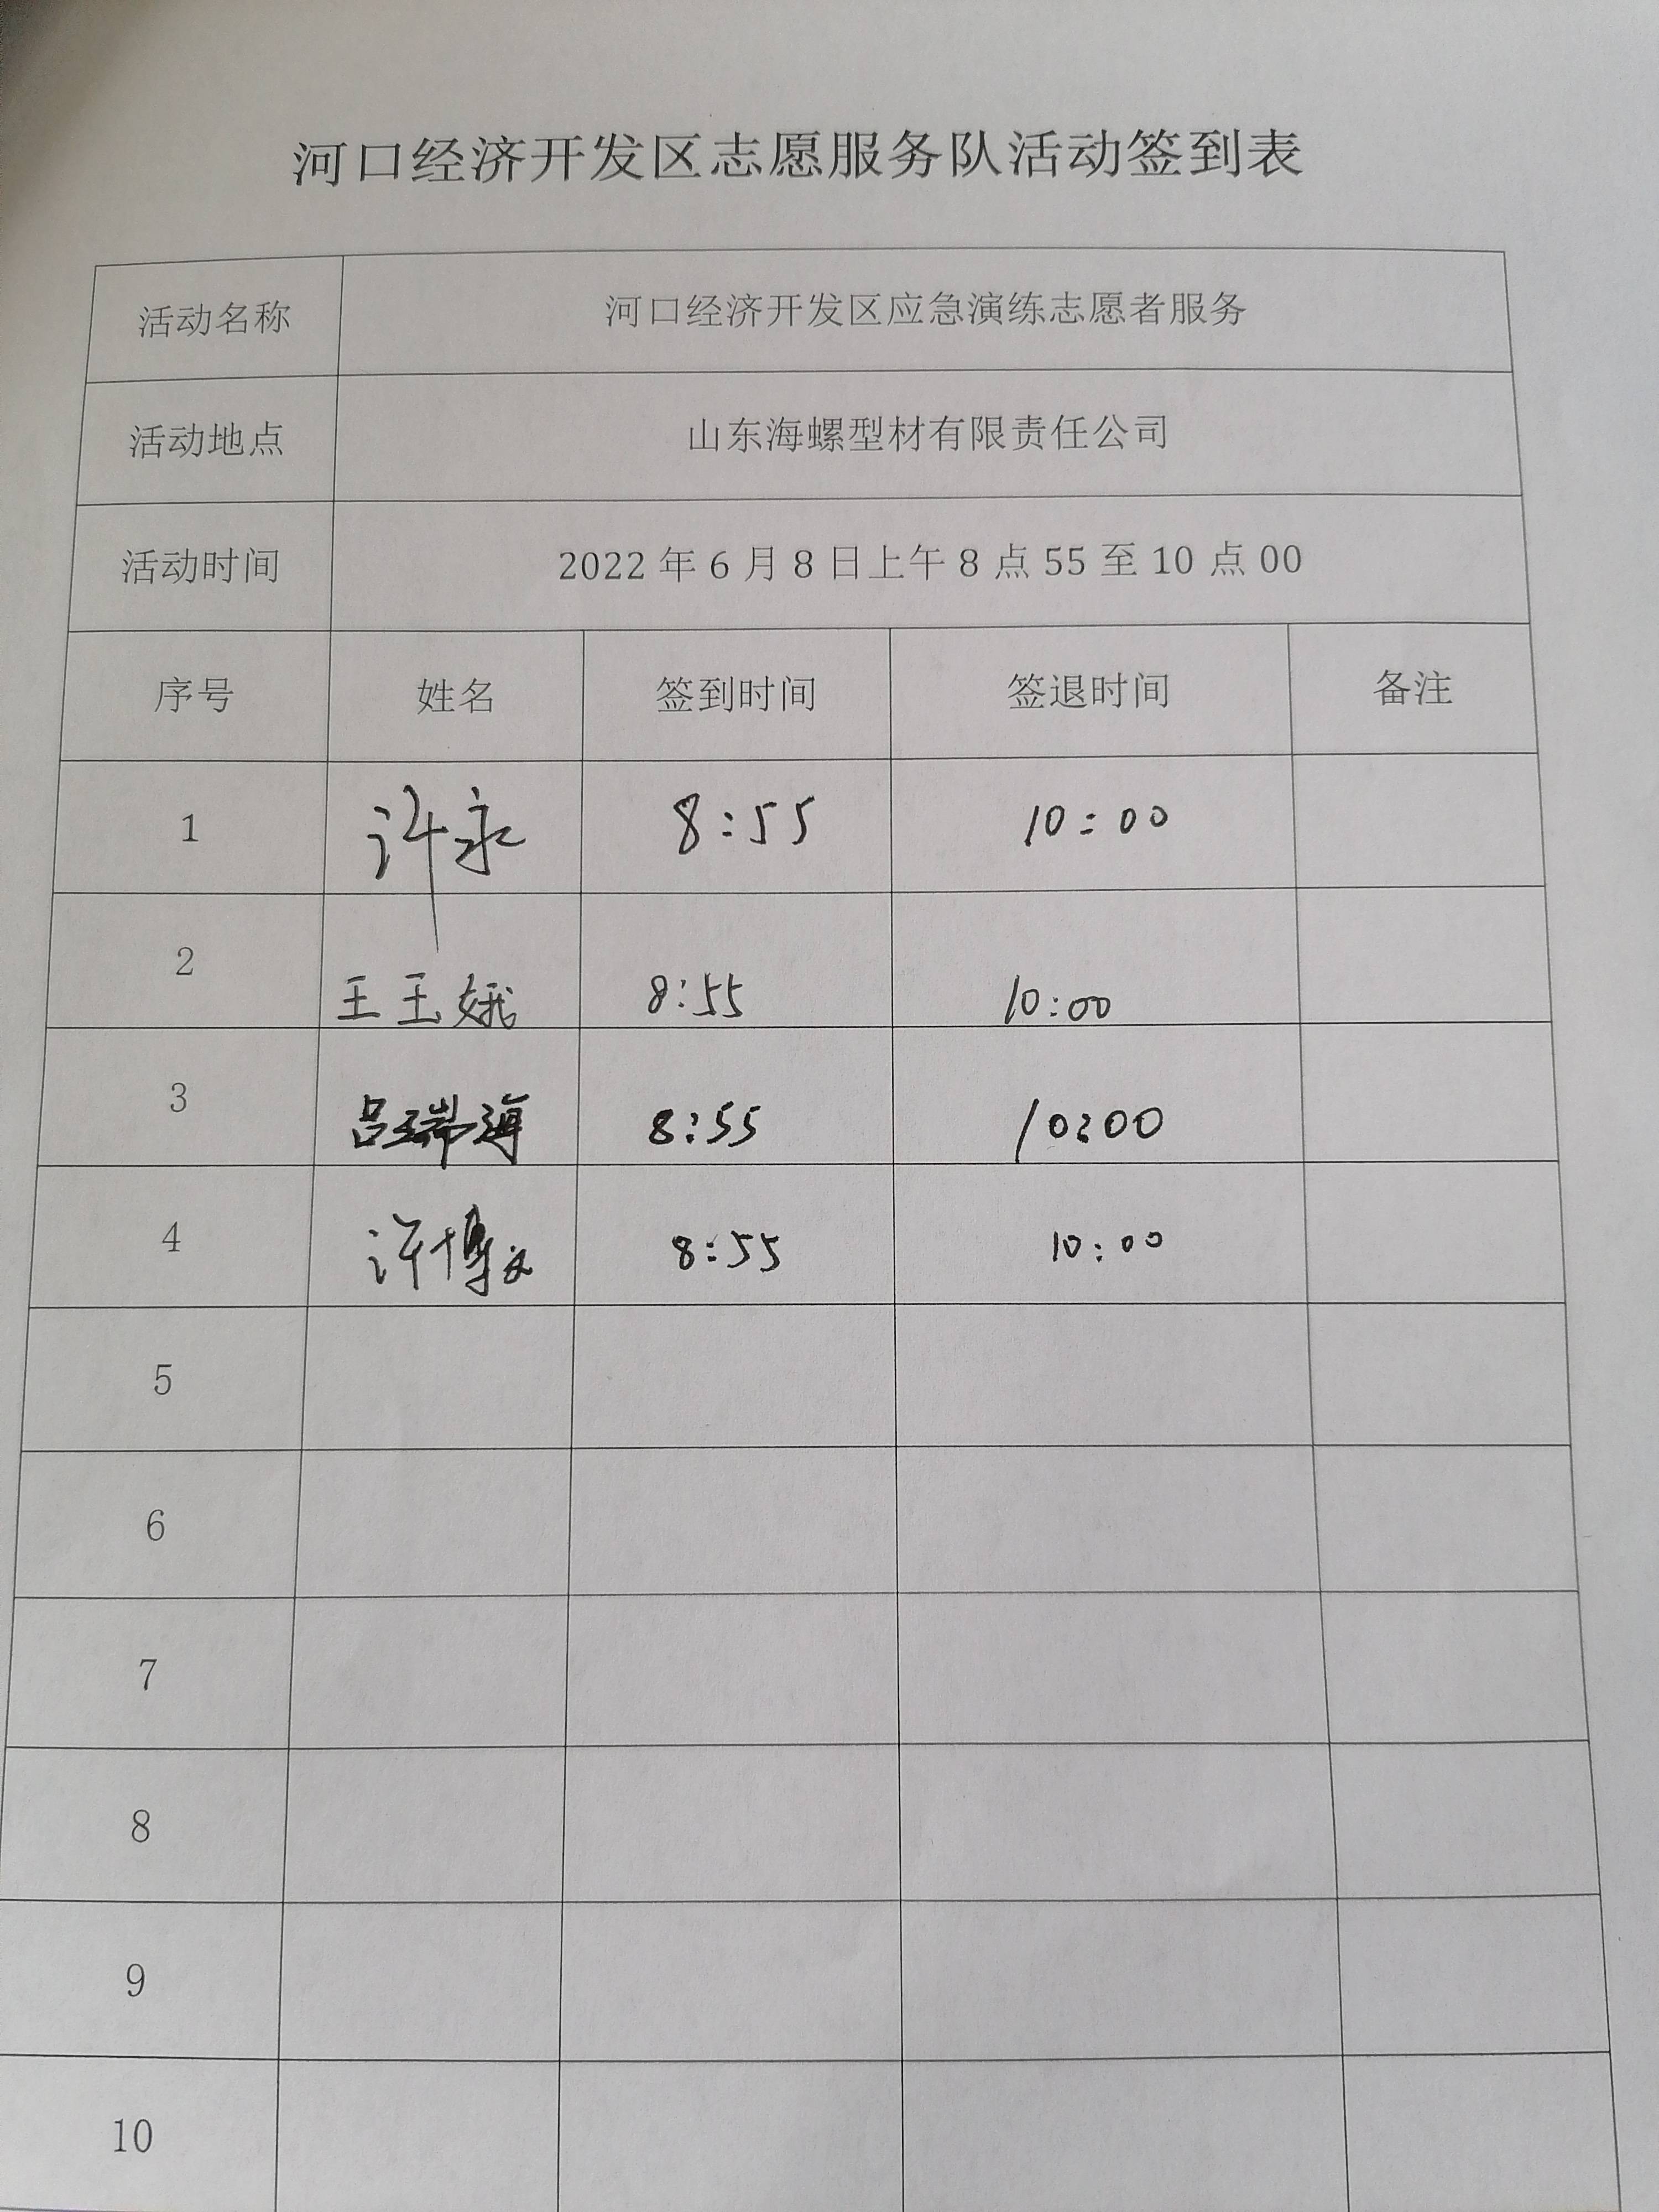 河口经济开发区志愿服务队活动签到表
活动名称 河口经济开发区应急演练志愿者服务
活动地点 山东海螺型材有限责任公司
活动时间 2022年6月8日上午8点55至10点00
序号 姓名 签到时间 签退时间 备注
1 许永 8:55 10:00
2 王玉娥 8:55 10:00
3 吕瑞海 8:55 10:00
4 许博文 8:55 10:00
5
6
7
8
9
10